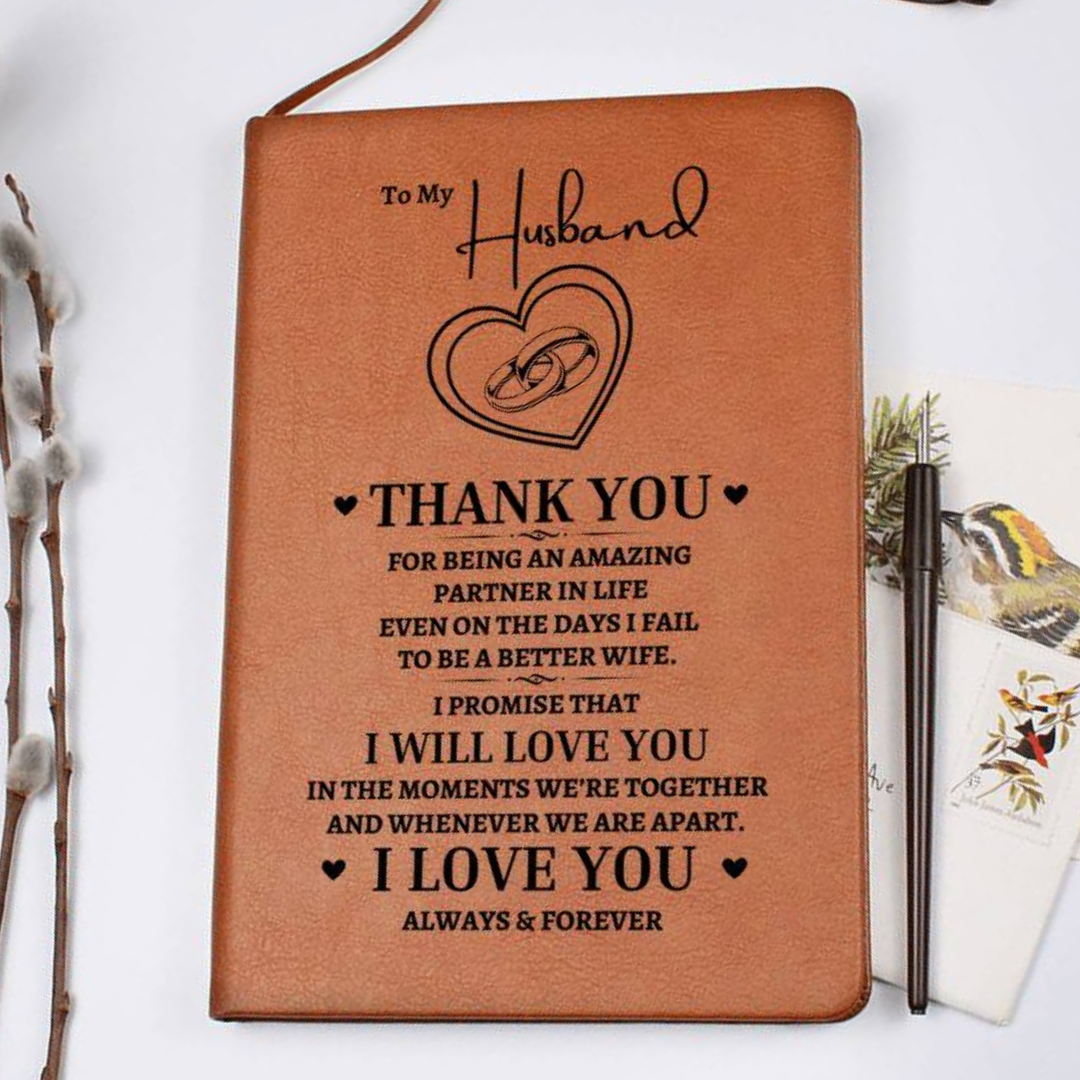 To My Husband
THANK YOU
FOR BEING AN AMAZING
PARTNER IN LIFE
EVEN ON THE DAYS I FAIL
TO BE A BETTER WIFE.
I PROMISE THAT
I WILL LOVE YOU
IN THE MOMENTS WE'RE TOGETHER
AND WHENEVER WE ARE APART.
I LOVE YOU
ALWAYS & FOREVER
Ave
37
John James Audubon